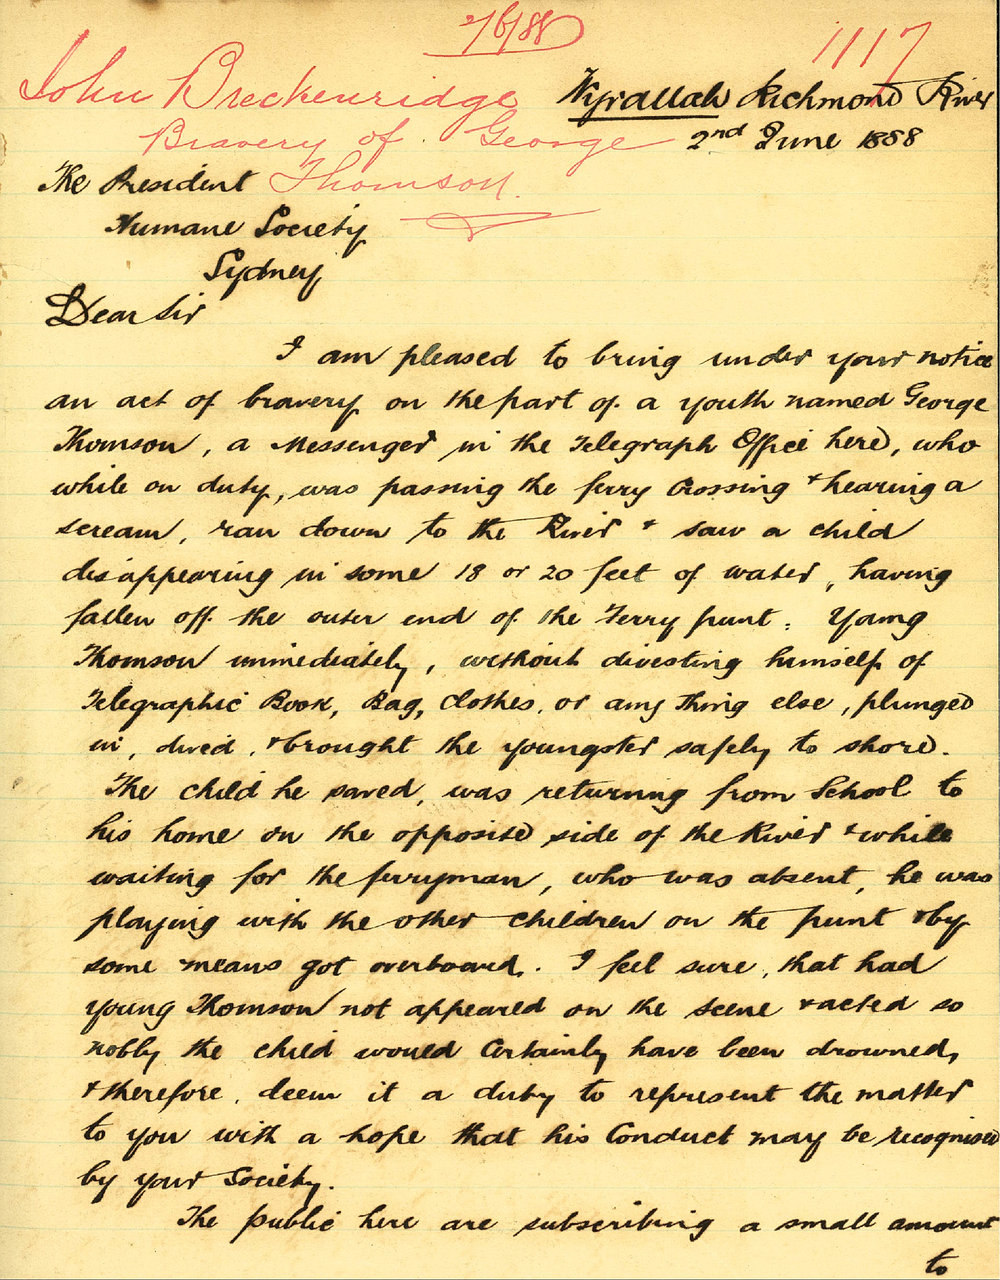 2/6/88
1117
John Breckenridge
Wyrallah Richmond River
Bravery of George
2nd June 1888
The President
Thomson
Humane Society
Sydney
Dear Sir
I am pleased to bring under your notice
an act of bravery on the part of a youth named George
Thomson, a Messenger in the Telegraph Office here, who
while on duty, was passing the ferry Crossing & hearing a
scream, ran down to the River & saw a child
disappearing in some 18 or 20 feet of water, having
fallen off the outer end of the Ferry punt. Young
Thomson immediately, without divesting himself of
Telegraphic Book, Bag, Clothes, or any thing else, plunged
in, dived, & brought the youngster safely to shore.
The child he saved, was returning from School to
his home on the opposite side of the River & while
waiting for the ferryman, who was absent, he was
playing with the other children on the punt & by
some means got overboard. I feel sure, that had
young Thomson not appeared on the scene & acted so
nobly the child would Certainly have been drowned,
& therefore, deem it a duty to represent the matter
to you with a hope that his Conduct may be recognised
by your Society.
The public here are subscribing a small amount
to